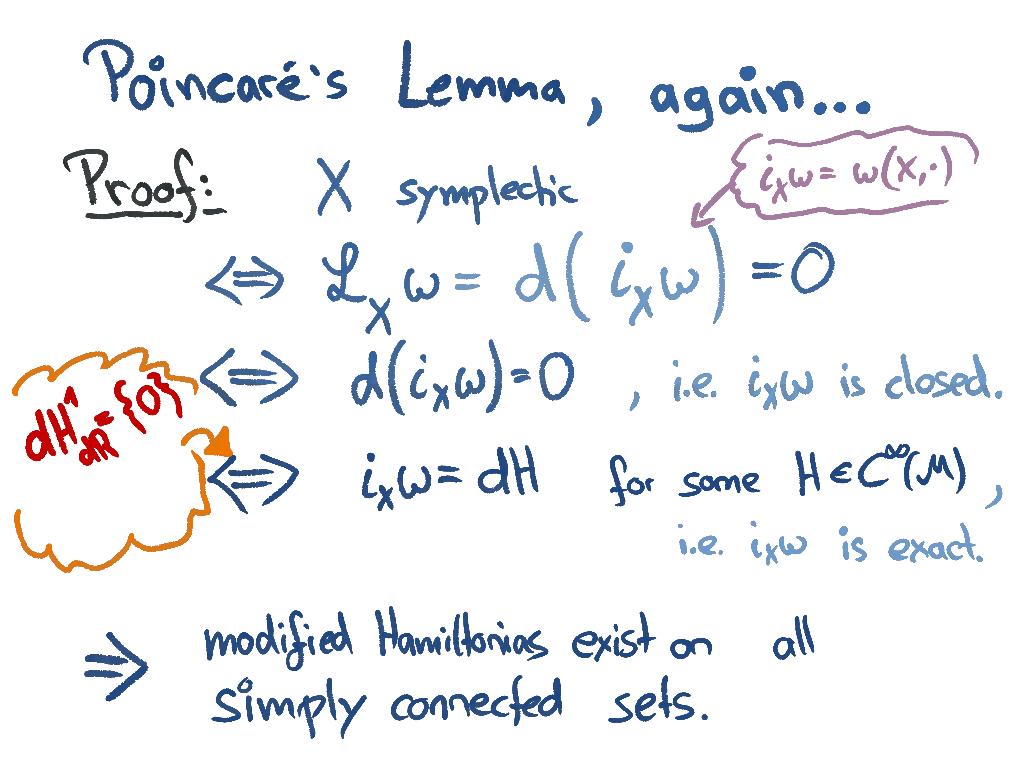 Poincaré's Lemma, again...
i_X ω = ω(X,·)
Proof: X symplectic
⇔ ℒ_X ω = d(i_X ω) = 0
⇔ d(i_X ω) = 0 , i.e. i_X ω is closed.
dH^1_dR = {0}
⇔ i_X ω = dH for some H ∈ C^∞(M),
i.e. i_X ω is exact.
⇒ modified Hamiltonias exist on all
simply connected sets.